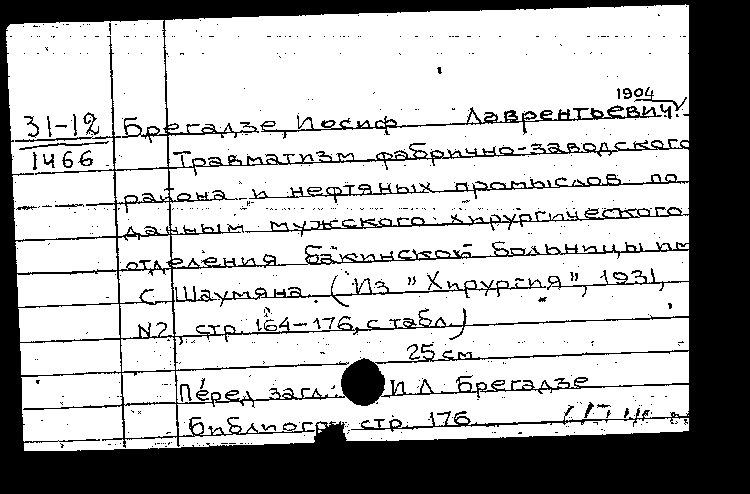 1904
31-12 Брегадзе, Иосиф Лаврентьевич.
1466 Травматизм фабрично-заводского
района и нефтяных промыслов по
данным мужского хирургического
отделения бакинской больницы им
С Шаумяна. (Из "Хирургия", 1931,
N2, стр. 164-176, с табл.)
25 см
Перед загл.: И Л Брегадзе
Библиогр стр. 176